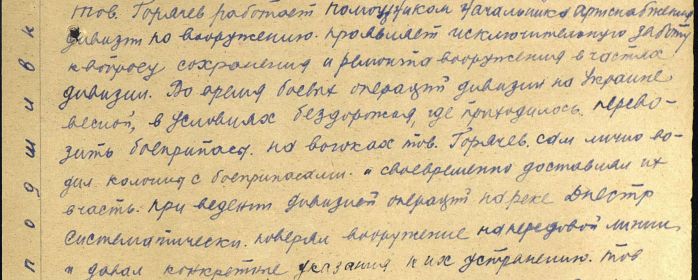 тов. Горячев работает помощником начальника Артснабжения
дивизт по вооружению. проявляет исключительную заботу
к вопросу сохранения и ремонта вооружения в частях
дивизии. Во время боевых операций дивизии на Украине
весной, в условиях бездорожья, где приходилось перево-
зить боеприпасы. на вогоках тов. Горячев. сам лично во-
дил колонны с боеприпасами. и своевременно доставлял их
в часть. при ведении дивизией операций на реке Днестр
систематически. поверял вооружение на передовой линии
и давал конкретные указания к их устранению. тов
подшивк